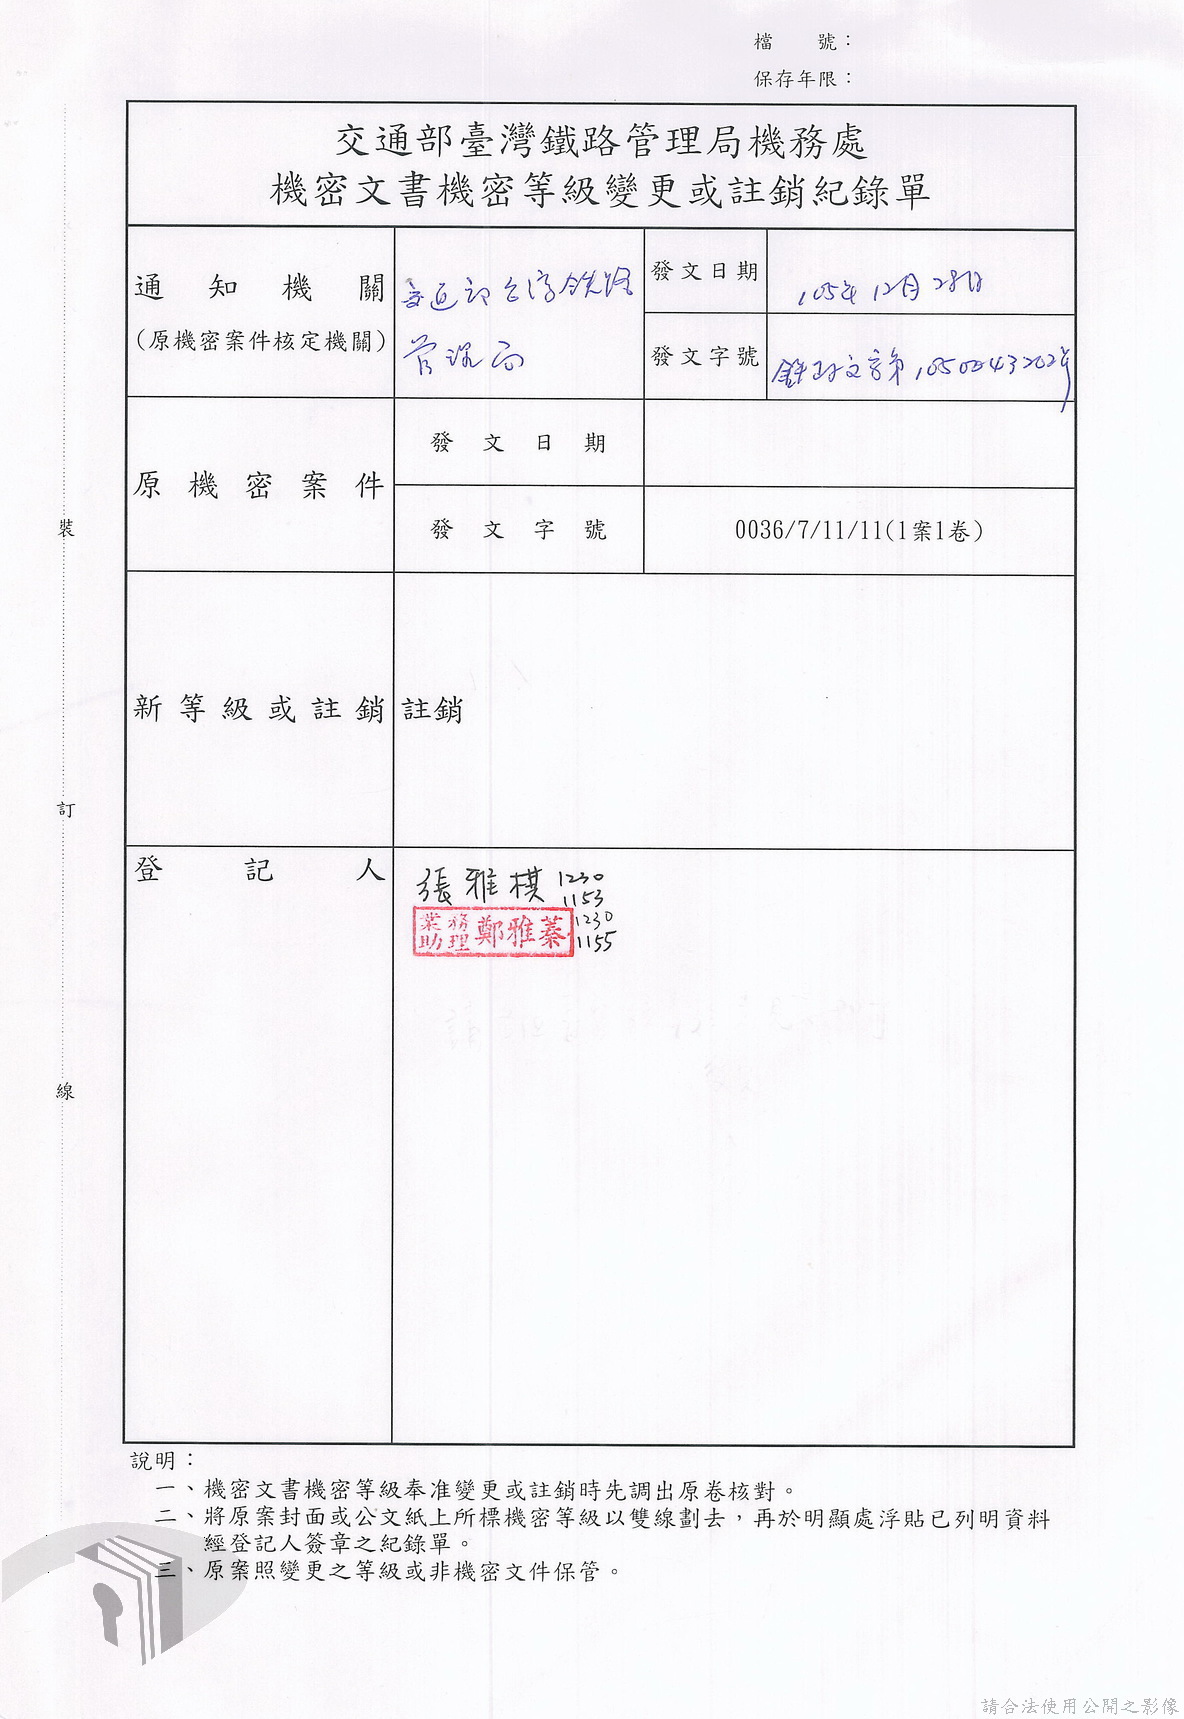 檔　　號：
保存年限：
交通部臺灣鐵路管理局機務處
機密文書機密等級變更或註銷紀錄單
通知機關
(原機密案件核定機關)
交通部台灣鐵路
管理局
發文日期
105年12月28日
發文字號
原機密案件
發文日期
發文字號
0036/7/11/11(1案1卷)
新等級或註銷
註銷
登記人
張雅棋 1230
1153
業務
助理 鄭雅蓁 1230
1155
裝
訂
線
說明：
一、機密文書機密等級奉准變更或註銷時先調出原卷核對。
二、將原案封面或公文紙上所標機密等級以雙線劃去，再於明顯處浮貼已列明資料
經登記人簽章之紀錄單。
三、原案照變更之等級或非機密文件保管。
請合法使用公開之影像